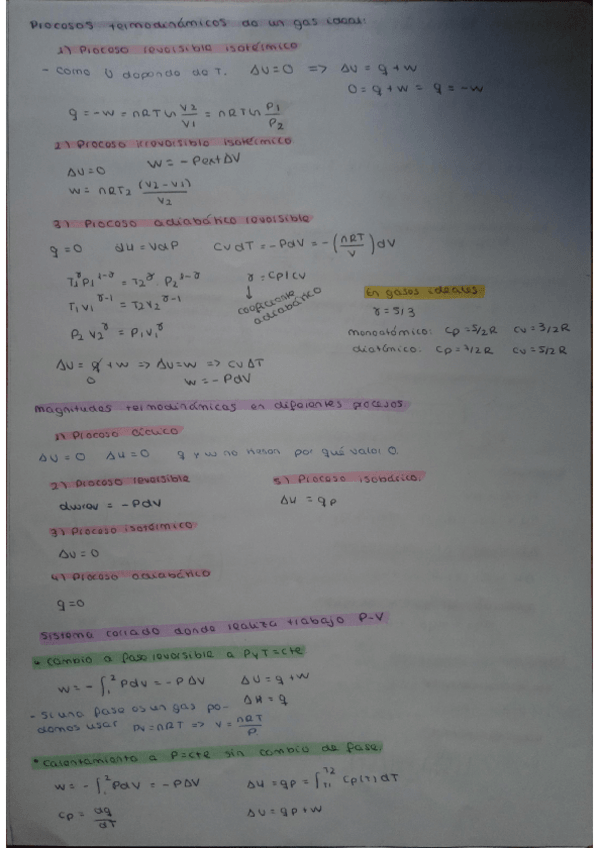 Procesos termodinámicos de un gas ideal:
1) Proceso reversible isotérmico
- Como U depende de T. ΔU = 0 => ΔU = q + w
0 = q + w = q = -w
q = -w = nRT ln V2/V1 = nRT ln P1/P2
2) Proceso irreversible isotérmico
ΔU = 0    w = -Pext ΔV
w = nRT2 (V2 - V1)/V2
3) Proceso adiabático reversible
q = 0    dH = VdP    CvdT = -PdV = -(nRT/V) dV
T1^γ P1^1-γ = T2^γ · P2^1-γ    γ = Cp/Cv
T1 V1^γ-1 = T2 V2^γ-1    ↓ coeficiente adiabático
P2 V2^γ = P1 V1^γ
En gases ideales.
γ = 5/3
monoatómico: Cp = 5/2 R    Cv = 3/2 R
diatómico: Cp = 7/2 R    Cv = 5/2 R
ΔU = q + w => ΔU = w => Cv ΔT
0    w = -PdV
Magnitudes termodinámicas en diferentes procesos
1) Proceso cíclico
ΔU = 0    ΔH = 0    q y w no tienen por qué valer 0.
2) Proceso reversible
dwrev = -PdV
5) Proceso isobárico.
ΔH = qp
3) Proceso isotérmico
ΔU = 0
4) Proceso adiabático
q = 0
Sistema cerrado donde realiza trabajo P-V
* Cambio a fase reversible a P y T = cte
w = -∫1^2 PdV = -PΔV    ΔU = q + w
ΔH = q
- Si una fase es un gas po-
demos usar PV = nRT => V = nRT/P
* Calentamiento a P = cte sin cambio de fase.
w = -∫1^2 PdV = -PΔV    ΔH = qp = ∫T1^T2 Cp(T) dT
Cp = dq/dT    ΔU = qp + w